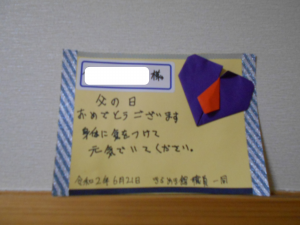 様
父の日
おめでとうございます
身体に気をつけて
元気でいてください。
令和2年6月21日 職員一同